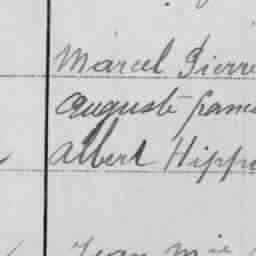 Marcel Pierre
Auguste
Albert Hippo
Jean Mie